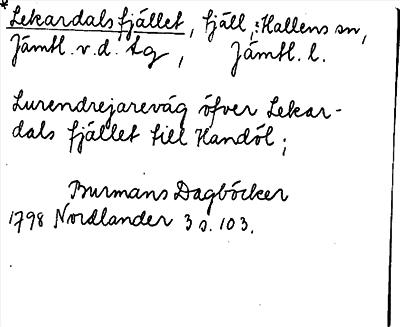 *Lekardalsfjället, fjäll, i Hallens sn,
Jämtl. v. d. tg, Jämtl. l.
Lurendrejareväg öfver Lekar-
dals fjället till Handöl;
Burmans Dagböcker
1798 Nordlander 3 s. 103.